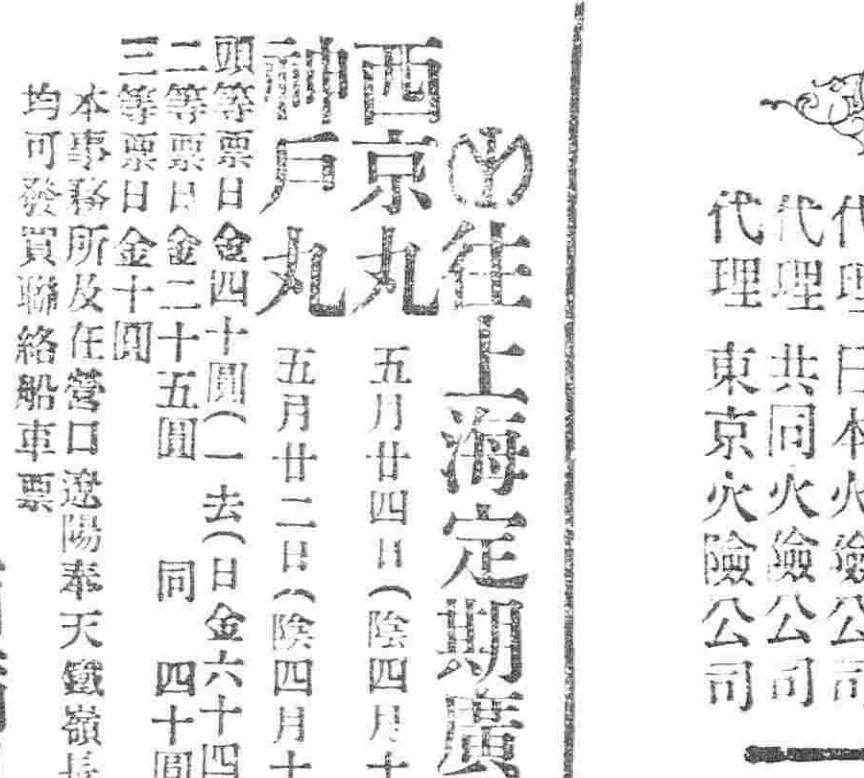 代理
代理 共同火險公司
代理 東京火險公司
往上海定期廣
西京丸 五月廿四日(陰四月十
神戶丸 五月廿二日(陰四月十
頭等票日金四十圓(一去(日金六十四
二等票日金二十五圓 同 四十圓
三等票日金十圓
本事務所及任營口遼陽奉天鐵嶺長
均可發買聯絡船車票